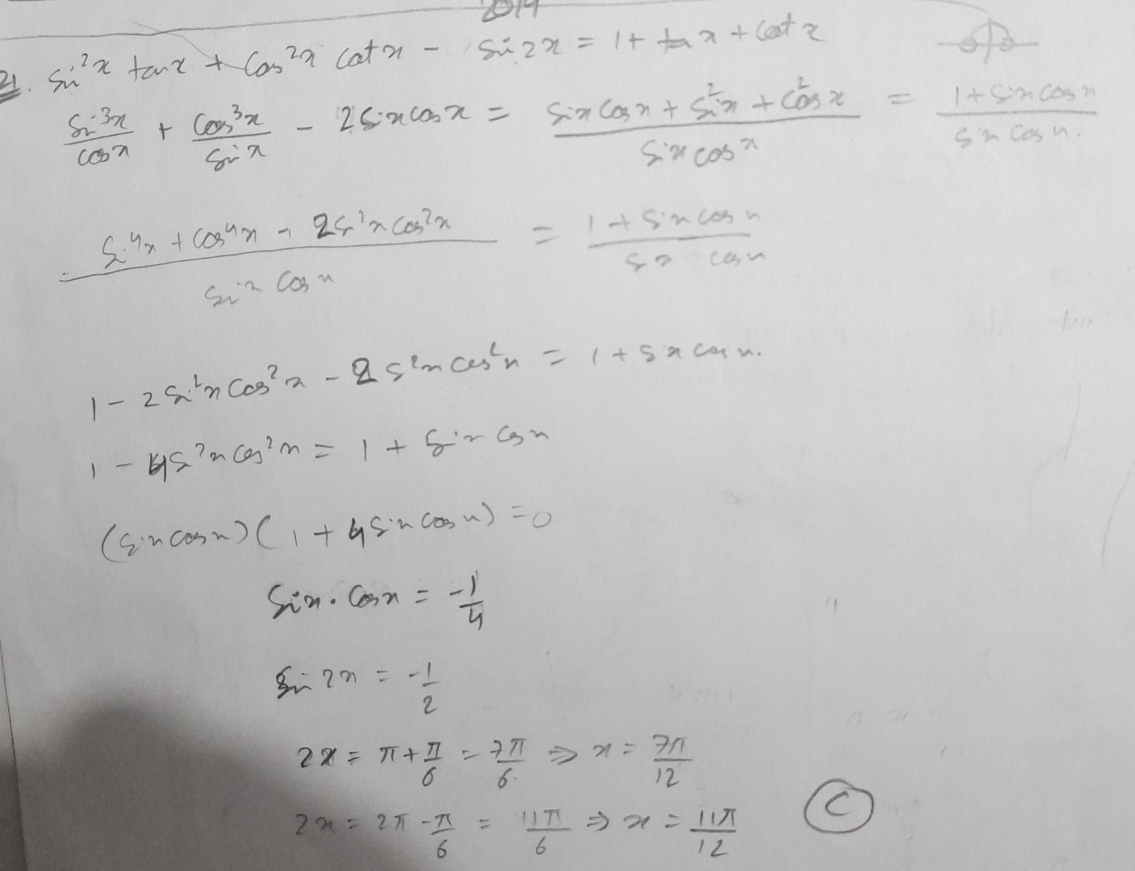 2014
21. Sin²x tanx + Cos²x Cotx - Sin2x = 1 + tanx + Cotx
Sin³x/Cosx + Cos³x/Sinx - 2SinxCosx = (SinxCosx + Sin²x + Cos²x)/(SinxCosx) = (1 + SinxCosx)/(SinxCosx).
(Sin⁴x + Cos⁴x - 2Sin²xCos²x)/(SinxCosx) = (1 + SinxCosx)/(SinxCosx)
1 - 2Sin²xCos²x - 2Sin²xCos²x = 1 + SinxCosx.
1 - 4Sin²xCos²x = 1 + SinxCosx
(SinxCosx)(1 + 4SinxCosx) = 0
Sinx·Cosx = -1/4
Sin2x = -1/2
2x = π + π/6 = 7π/6. ⇒ x = 7π/12
2x = 2π - π/6 = 11π/6 ⇒ x = 11π/12
C